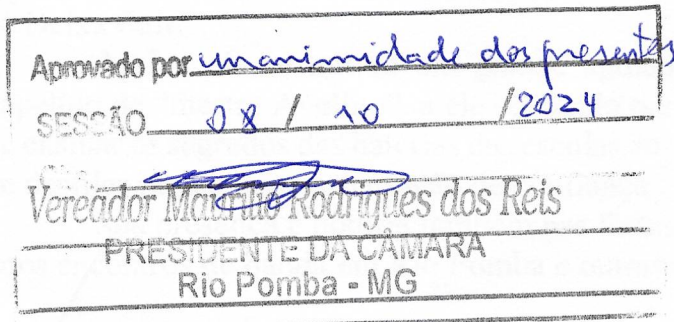 Aprovado por unanimidade dos presentes
SESSÃO 08 / 10 / 2024
Vereador Maurilio Rodrigues dos Reis
PRESIDENTE DA CÂMARA
Rio Pomba - MG